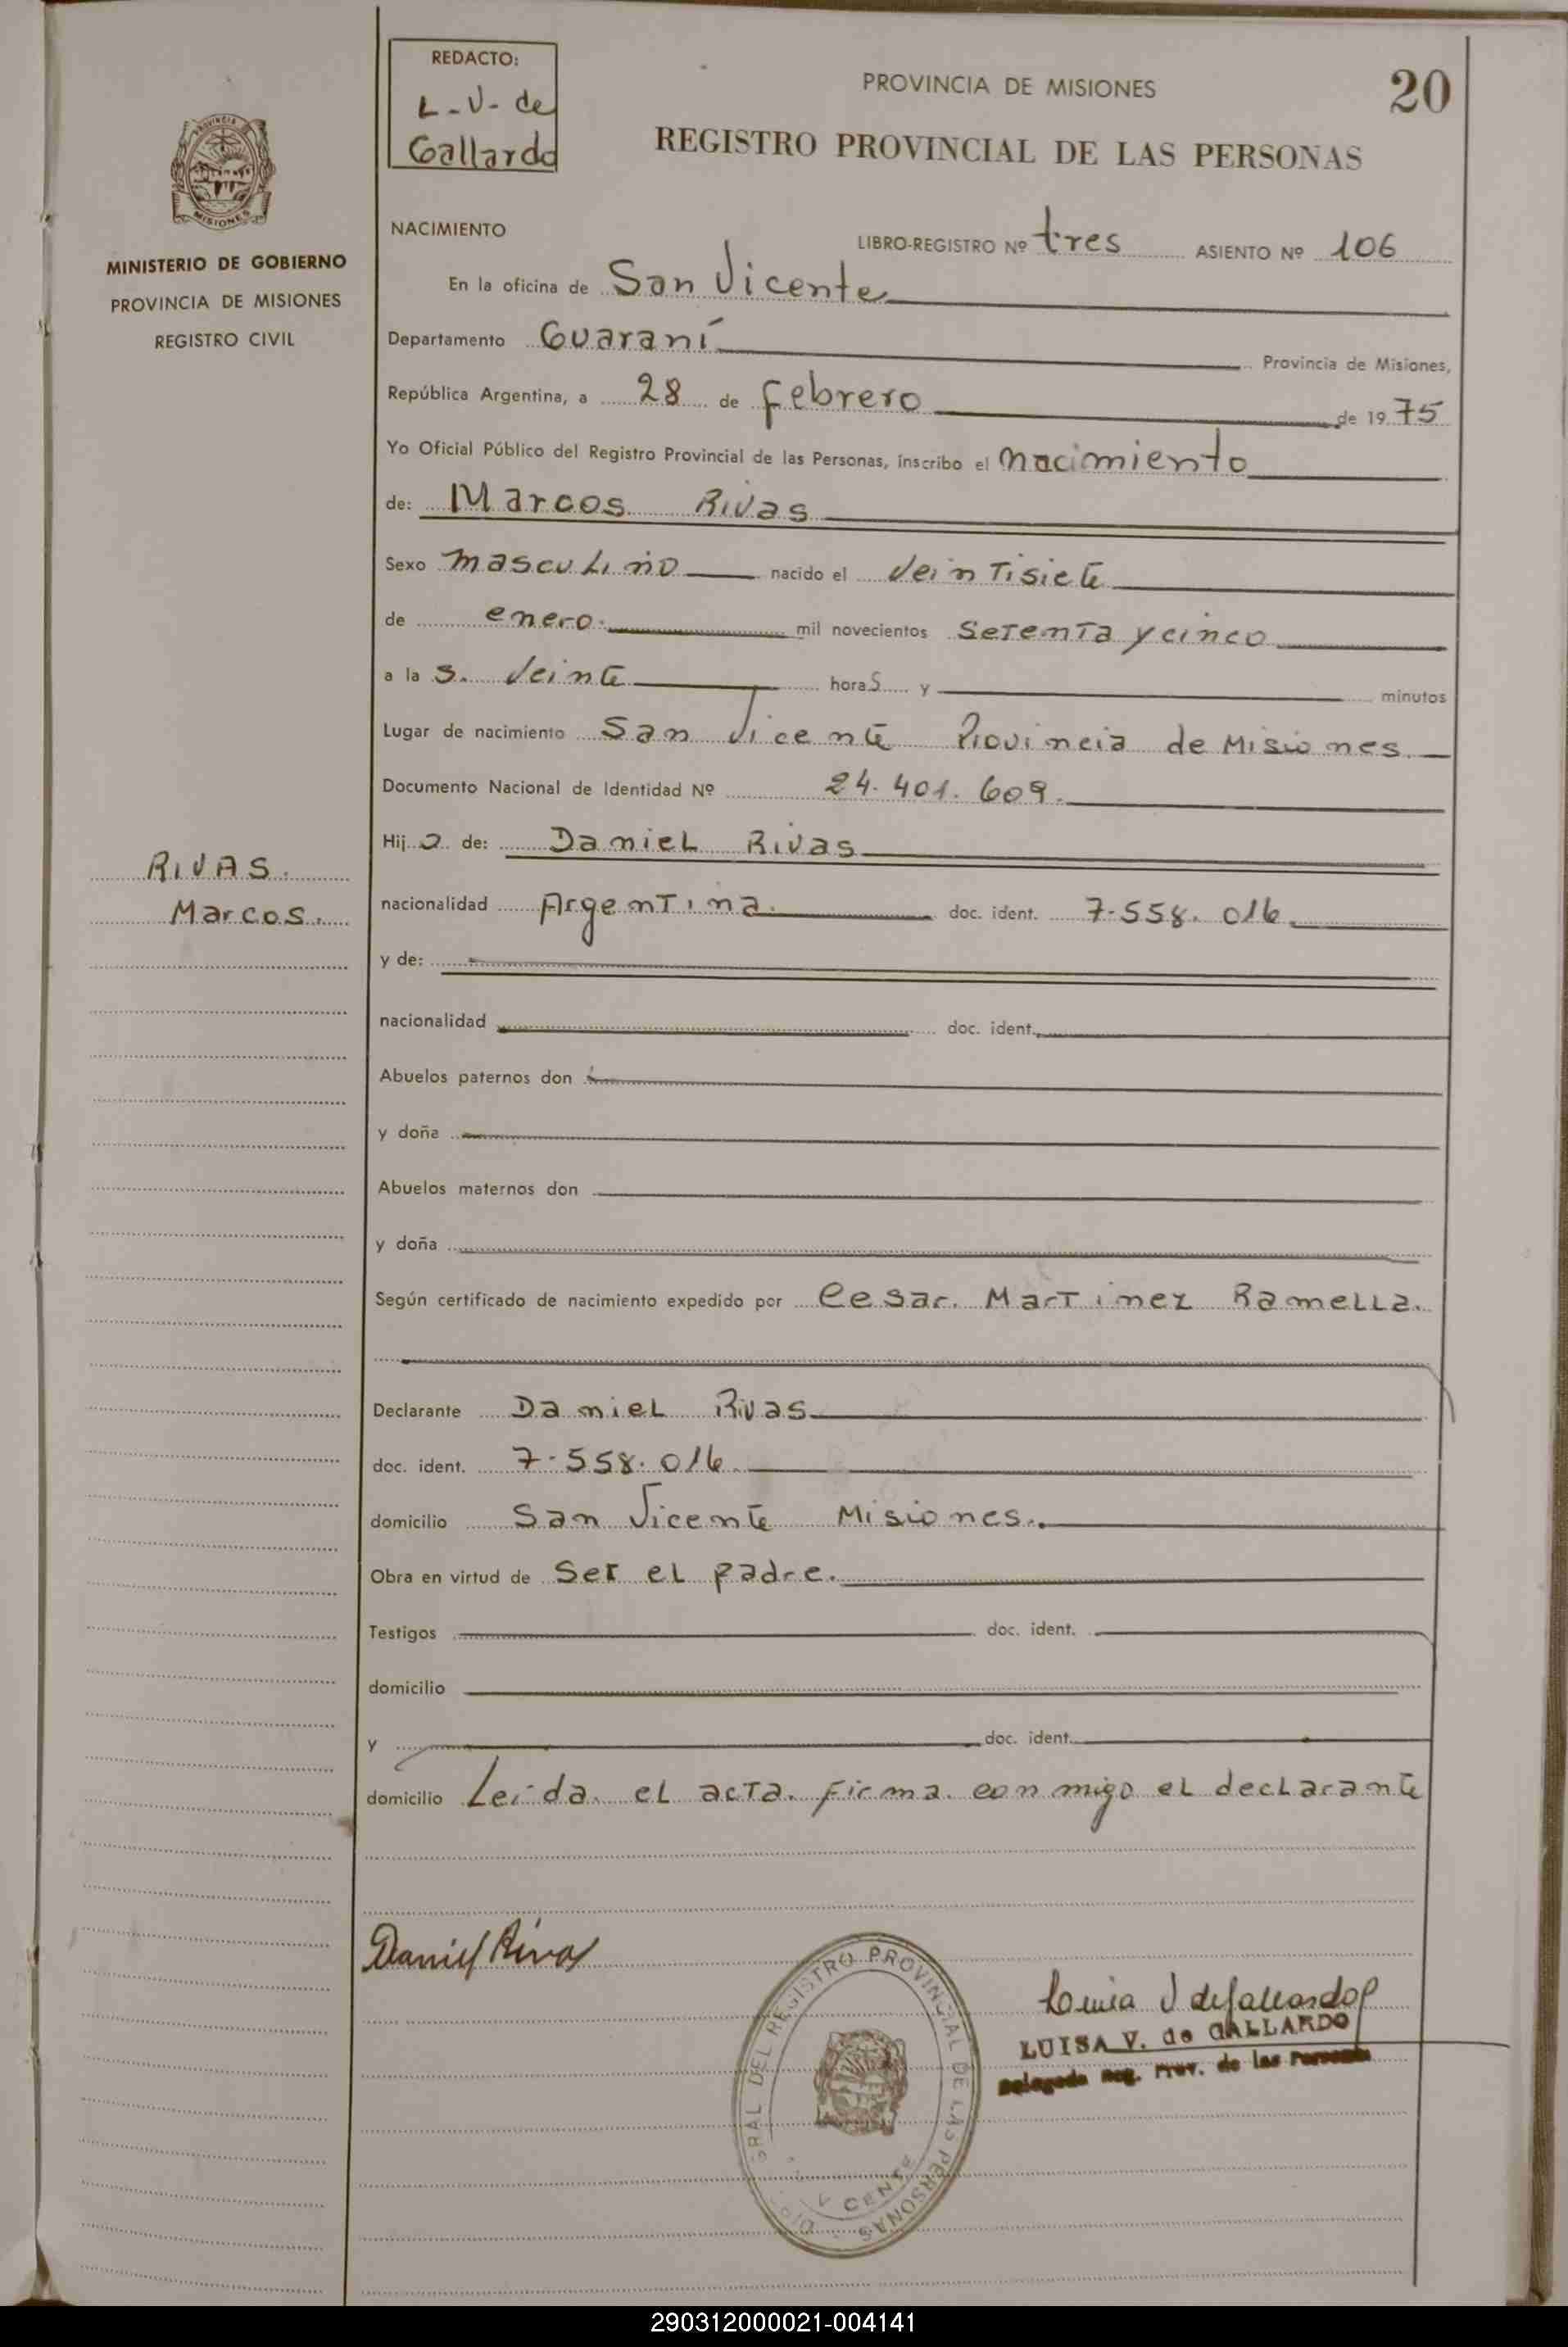 REDACTO:
L-V- de
Gallardo
PROVINCIA DE MISIONES
20
REGISTRO PROVINCIAL DE LAS PERSONAS
PROVINCIA
MISIONES
MINISTERIO DE GOBIERNO
PROVINCIA DE MISIONES
REGISTRO CIVIL
NACIMIENTO
LIBRO-REGISTRO Nº tres ASIENTO Nº 106
En la oficina de San Vicente
Departamento Guaraní Provincia de Misiones,
República Argentina, a 28 de febrero de 1975
Yo Oficial Público del Registro Provincial de las Personas, inscribo el nacimiento
de: Marcos Rivas
Sexo masculino nacido el veintisiete
de enero. mil novecientos setenta y cinco
a la s. veinte horas y minutos
Lugar de nacimiento San Vicente Provincia de Misiones
Documento Nacional de Identidad Nº 24.401.609.
Hijo de: Daniel Rivas
RIVAS.
Marcos.
nacionalidad Argentina. doc. ident. 7.558.016.
y de:
nacionalidad doc. ident.
Abuelos paternos don
y doña
Abuelos maternos don
y doña
Según certificado de nacimiento expedido por Cesar. Martinez Ramella.
Declarante Daniel Rivas
doc. ident. 7.558.016.
domicilio San Vicente Misiones.
Obra en virtud de ser el padre.
Testigos doc. ident.
domicilio
y doc. ident.
domicilio Leida. el acta. firma. conmigo el declarante
Daniel Rivas
GRAL DEL REGISTRO PROVINCIAL DE LAS PERSONAS
Luisa V de Gallardo
LUISA V. de GALLARDO
Delegada Reg. Prov. de las Personas
290312000021-004141